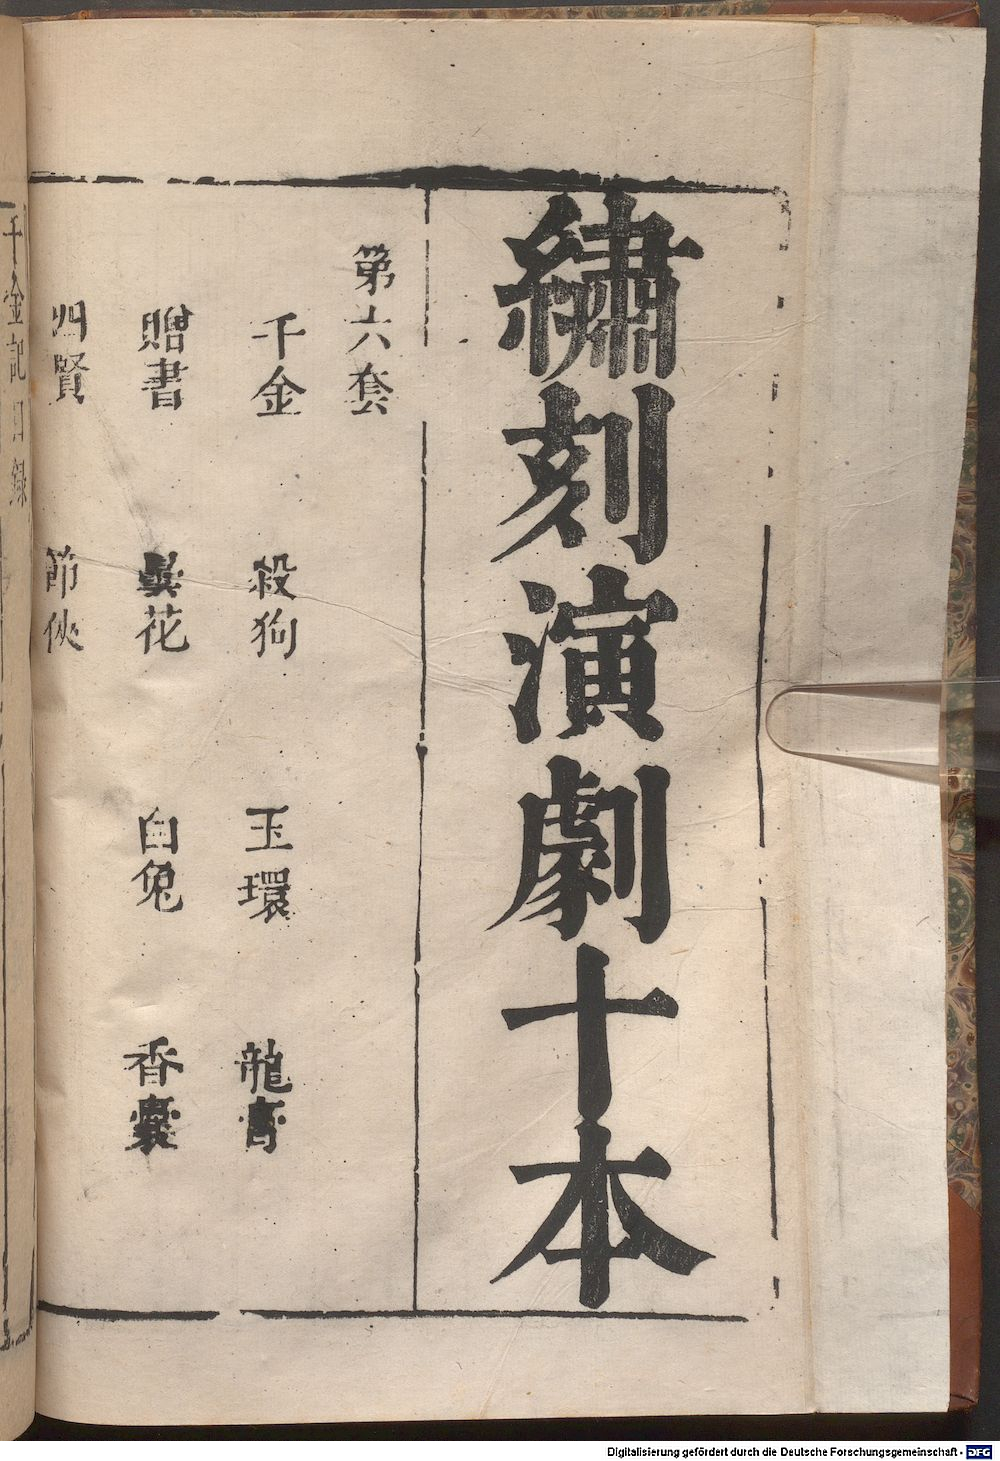 繡刻演劇十本
第六套
千金 殺狗 玉環 龍膏
贈書 曇花 白兔 香囊
四賢 節俠
千金記目錄
Digitalisierung gefördert durch die Deutsche Forschungsgemeinschaft - DFG